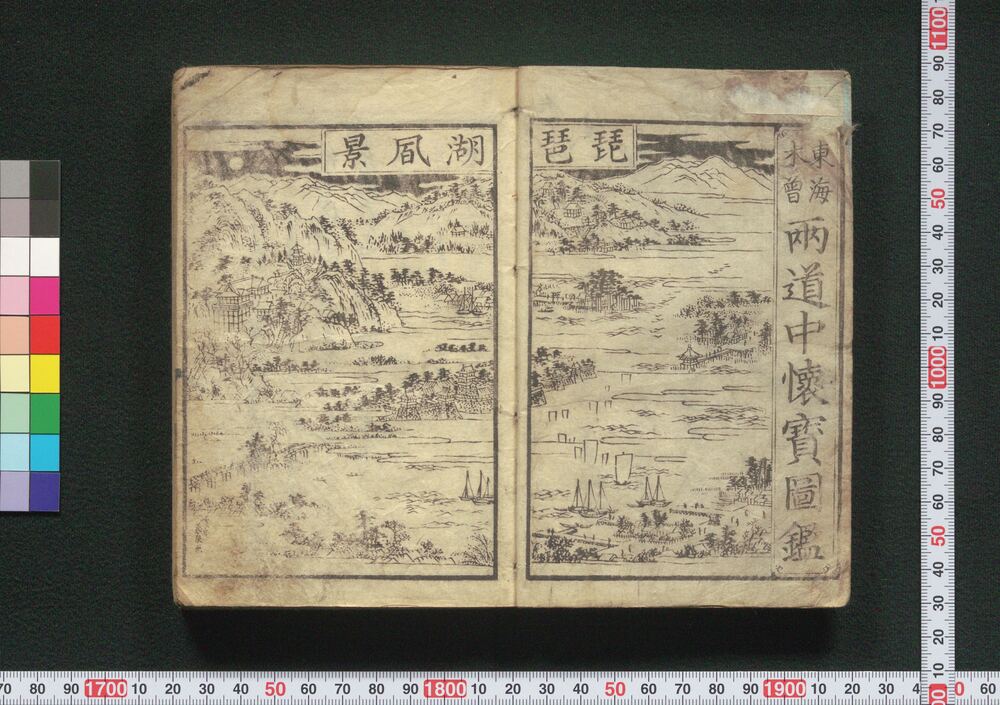 東海
木曾
兩道中懐寳圖鑑
琵琶
湖凨景
1100
90
80
70
60
50
40
30
20
10
1000
90
80
70
60
50
40
30
20
10
70 80 90 1700 10 20 30 40 50 60 70 80 90 1800 10 20 30 40 50 60 70 80 90 1900 10 20 30 4 0 50 60